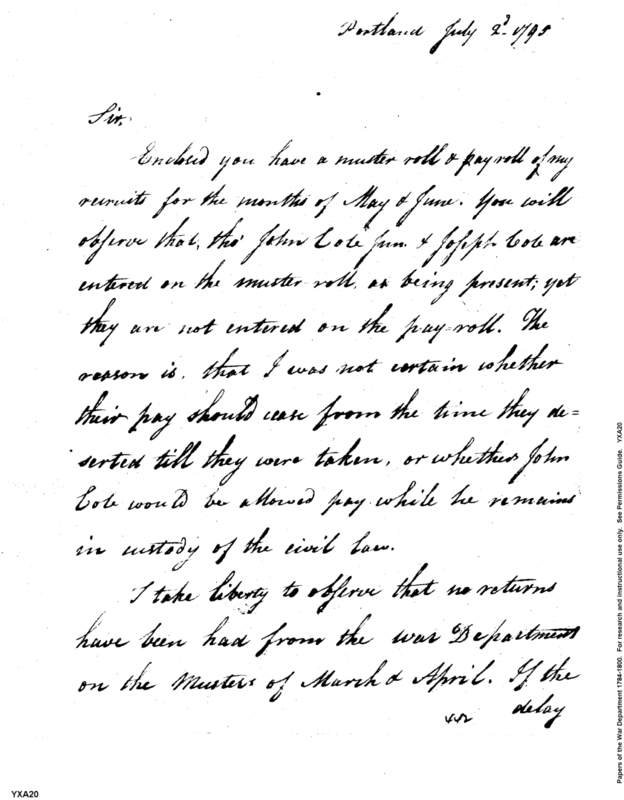 Portland July 2d 1795
Sir,
Enclosed you have a muster roll & pay roll of my
recruits for the months of May & June. You will
observe that, tho' John Cole Jun. & Joseph Cole are
entered on the muster roll, as being present; yet
they are not entered on the pay-roll. The
reason is, that I was not certain whether
their pay should cease from the time they de=
serted till they were taken, or whether John
Cole would be allowed pay while he remains
in custody of the civil law.
I take liberty to observe that no returns
have been had from the war Department
on the Musters of March & April. If the
delay
YXA20
Papers of the War Department 1784-1800. For research and instructional use only. See Permissions Guide. YXA20